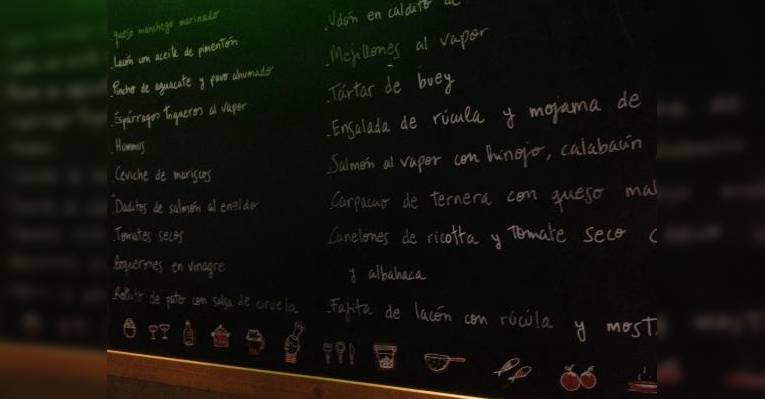 queso manchego marinado
.Lacón con aceite de pimentón
.Pincho de aguacate y pavo ahumado
.Espárragos trigueros al vapor
.Hummus
.Ceviche de mariscos
.Daditos de salmón al eneldo
.Tomates secos
.Boquerones en vinagre
.Rollito de pato con salsa de ciruela
.Udón en caldito de
.Mejillones al vapor
.Tártar de buey
.Ensalada de rúcula y mojama de
.Salmón al vapor con hinojo, calabacín
.Carpaccio de ternera con queso mal
.Canelones de ricotta y tomate seco c
y albahaca
.Fajita de lacón con rúcula y most